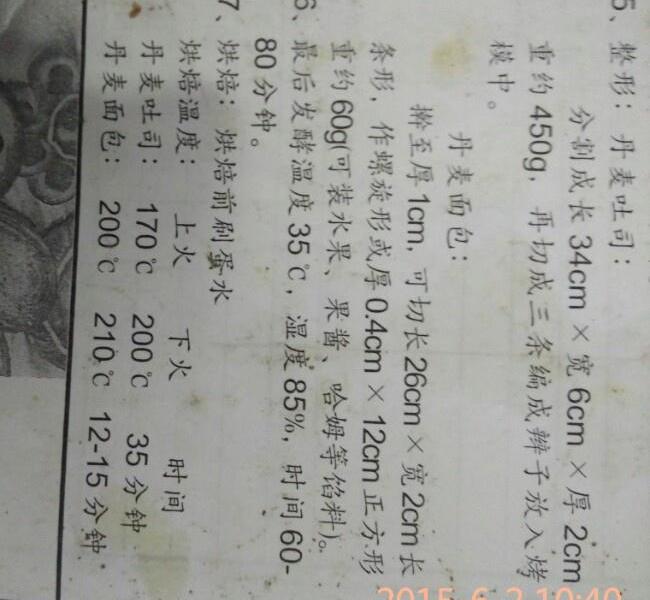 5、整形：丹麦吐司：
分割成长 34cm × 宽 6cm × 厚 2cm
重约 450g，再切成三条编成辫子放入烤
模中。
丹麦面包：
擀至厚 1cm，可切长 26cm × 宽 2cm 长
条形，作螺旋形或厚 0.4cm × 12cm 正方形
重约 60g(可装水果、果酱、哈姆等馅料)。
6、最后发酵温度 35℃，湿度 85%，时间 60-
80 分钟。
7、烘焙：烘焙前刷蛋水
烘焙温度： 上火 下火 时间
丹麦吐司： 170℃ 200℃ 35 分钟
丹麦面包： 200℃ 210℃ 12-15 分钟
2015-6-2 10:40